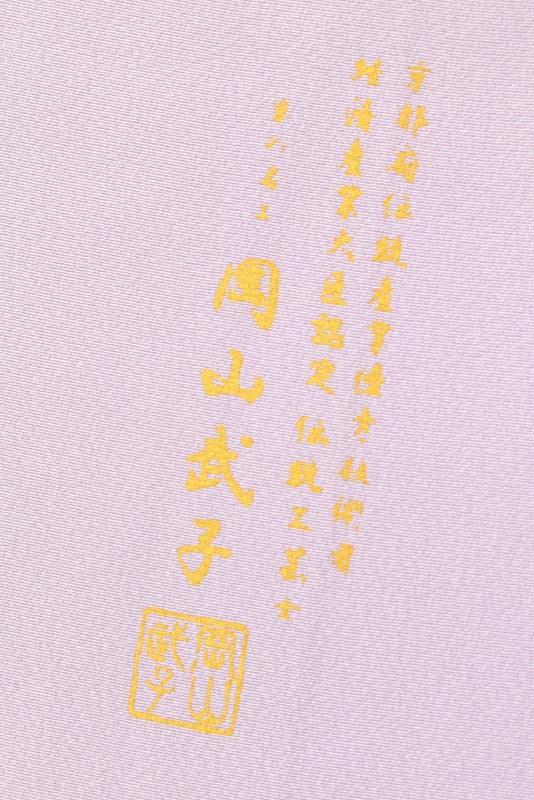 京都府伝統産業優秀技術者
経済産業大臣認定 伝統工芸士
岡山武子
岡山
武子